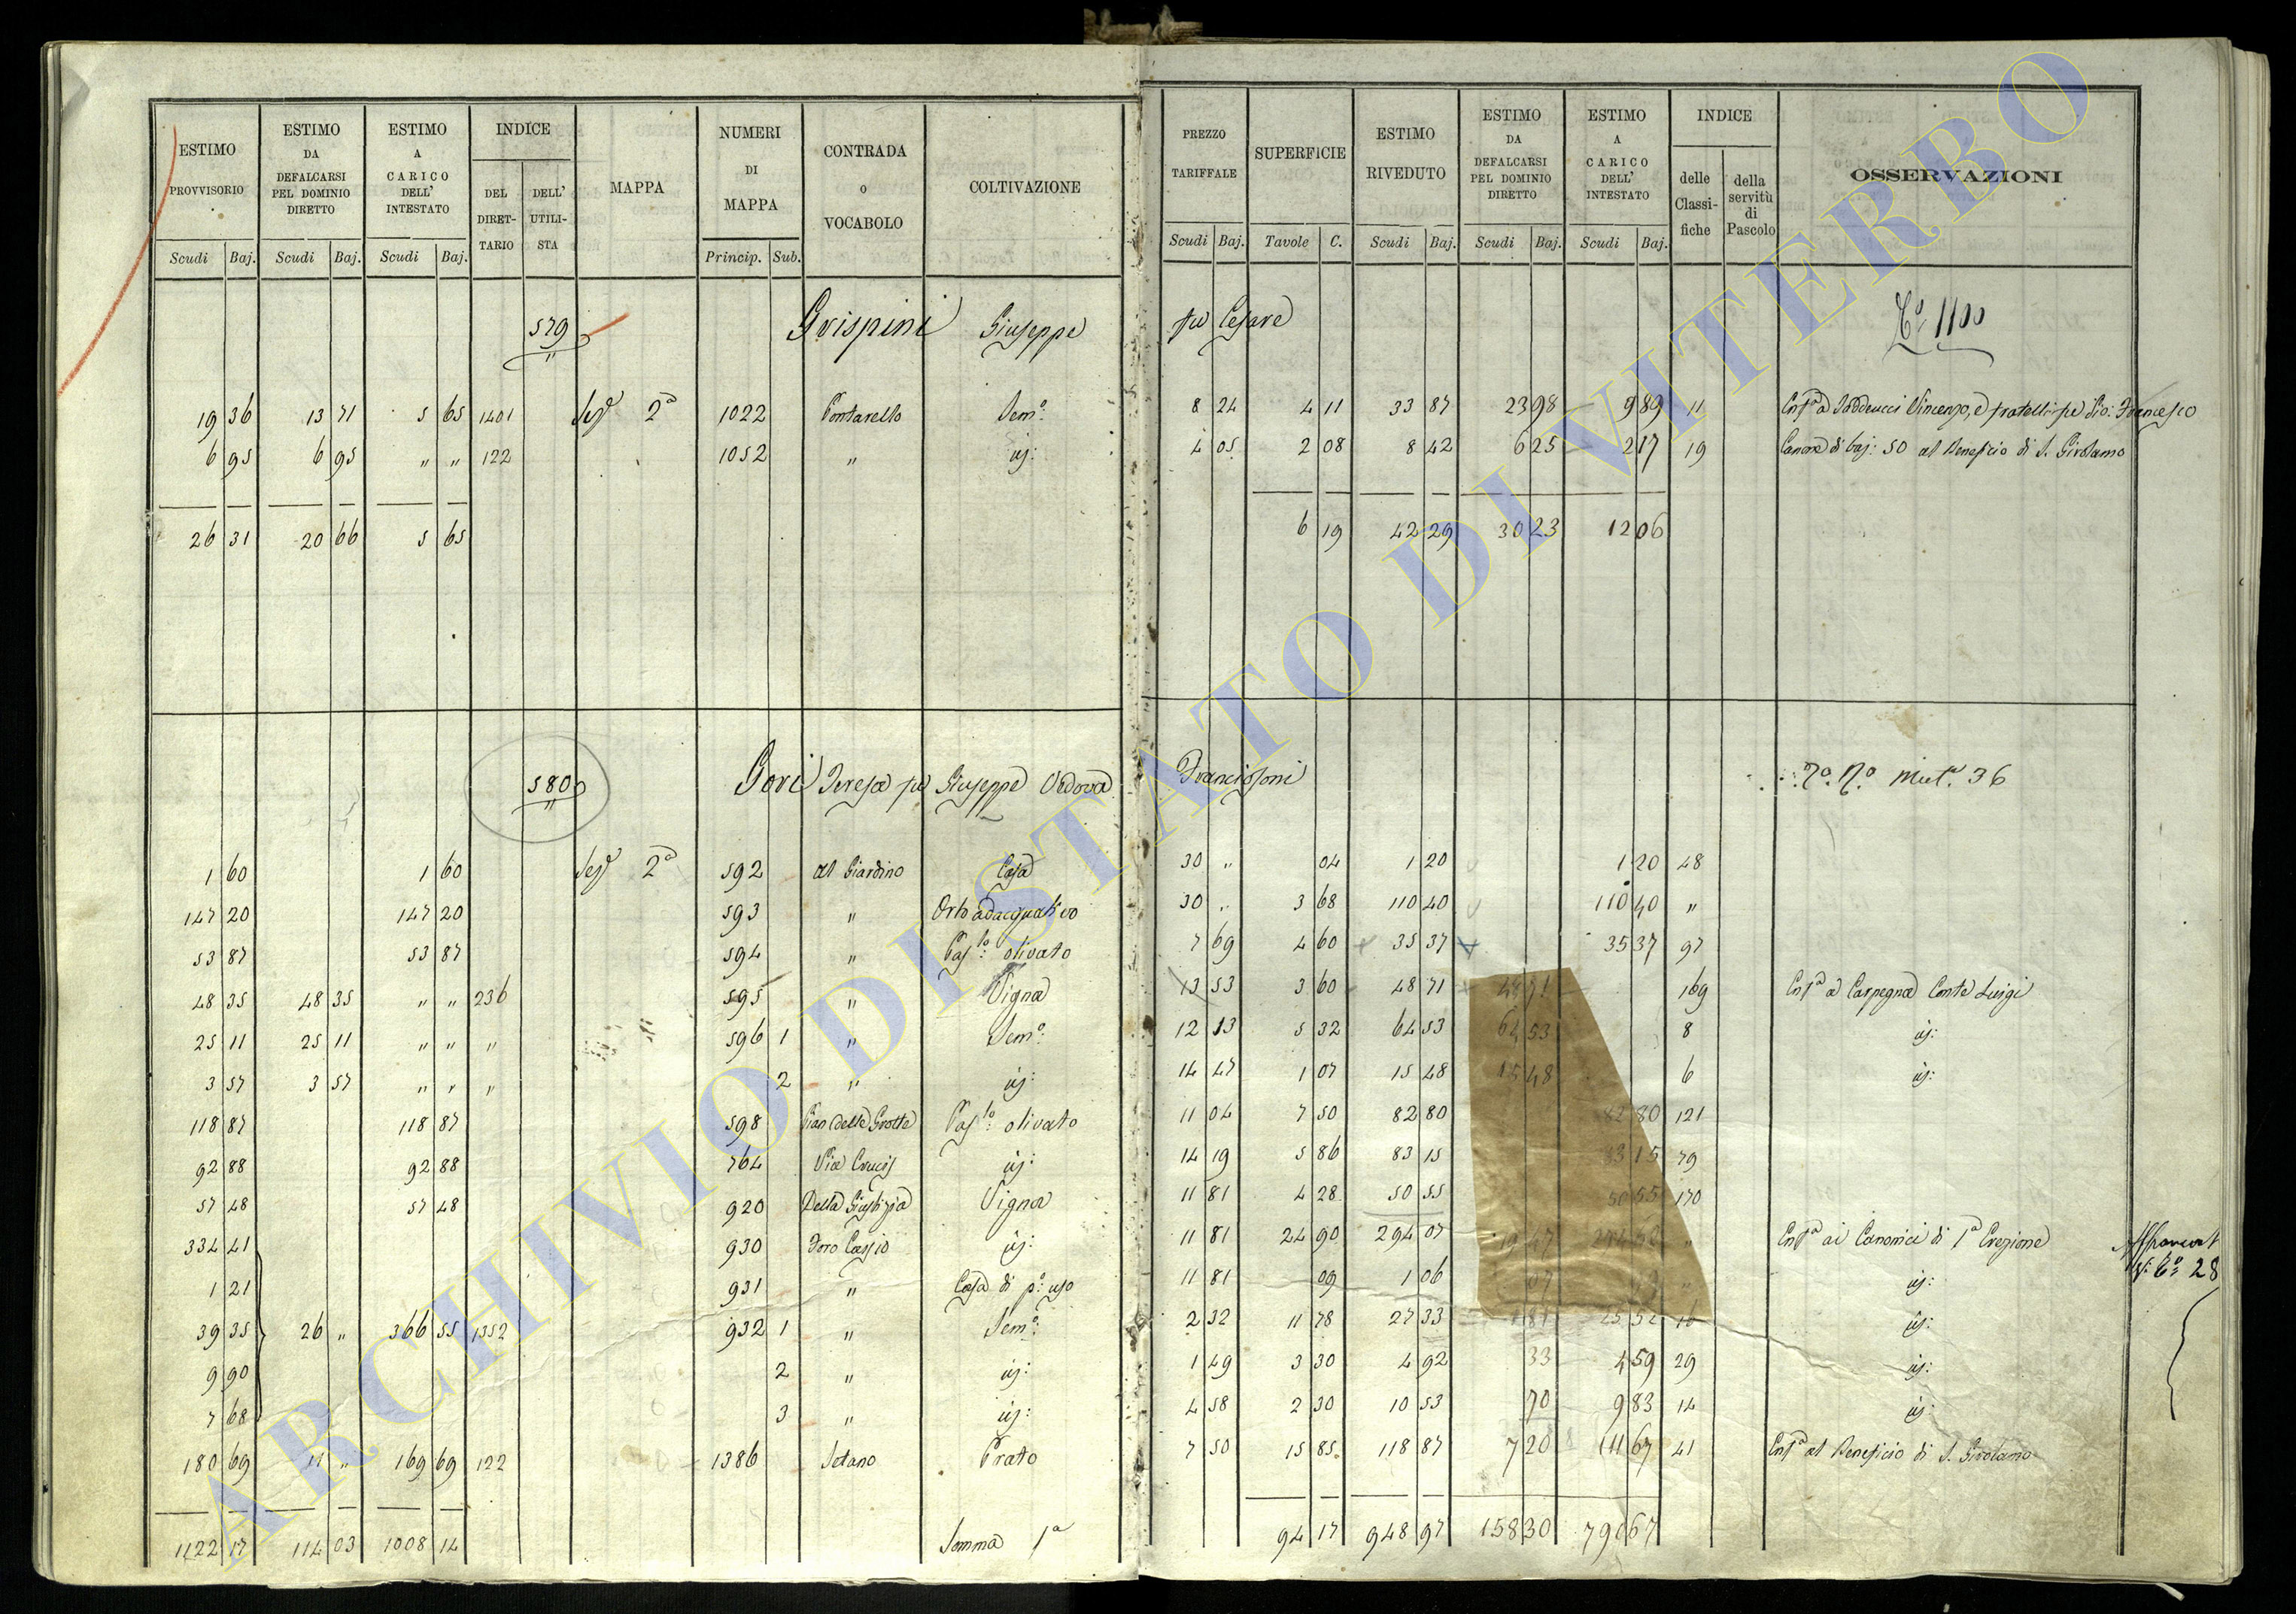 ESTIMO PROVVISORIO | ESTIMO DA DEFALCARSI PEL DOMINIO DIRETTO | ESTIMO A CARICO DELL' INTESTATO | INDICE DEL DIRETTARIO | DELL' UTILISTA | MAPPA | NUMERI DI MAPPA | CONTRADA O VOCABOLO | COLTIVAZIONE | PREZZO TARIFFALE | SUPERFICIE | ESTIMO RIVEDUTO | ESTIMO DA DEFALCARSI PEL DOMINIO DIRETTO | ESTIMO A CARICO DELL' INTESTATO | INDICE delle Classifiche | della servitù di Pascolo | OSSERVAZIONI
Scudi Baj. | Scudi Baj. | Scudi Baj. | Princip. Sub. | Scudi Baj. | Tavole C. | Scudi Baj. | Scudi Baj. | Scudi Baj.
579 Grispini Giuseppe fu Cesare 1100
19 36 13 71 5 65 1401 2ª 1022 Pontarello Semº: 8 24 4 11 33 87 23 98 9 89 11 Enfª a Vincenzo, e fratelli Francesco
6 95 6 95 " " 122 1052 " id: 4 05 2 08 8 42 6 25 2 17 19 Canone di baj: 50 al Beneficio di S. Girolamo
26 31 20 66 5 65 6 19 42 29 30 23 12 06
580 Gori Teresa fu Giuseppe Vedova Franciosoni Mutª. 36
1 60 1 60 2ª 592 al Giardino Casa 30 " 04 1 20 1 20 48
147 20 147 20 593 " Orto adacquativo 30 " 3 68 110 40 110 40 "
53 87 53 87 594 " Pasˡᵒ: olivato 7 69 4 60 35 37 35 37 97
48 35 48 35 " " 236 595 " Vigna 13 53 3 60 48 71 48 71 169 Enfª a Carpegna Conte Luigi
25 11 25 11 " " " 596 1 " Semº: 12 13 5 32 64 53 64 53 8 id:
3 57 3 57 " " " 2 " id: 14 47 1 07 15 48 15 48 6 id:
118 87 118 87 598 Pian delle Grotte Pasˡᵒ: olivato 11 04 7 50 82 80 82 80 121
92 88 92 88 764 Via Crucis id: 14 19 5 86 83 15 83 15 79
57 48 57 48 920 Della Giustizia Vigna 11 81 4 28 50 55 50 55 170
334 41 930 Foro Cassio id: 11 81 24 90 294 07 19 47 274 60 " Enfª ai Canonici di 1ª Erezione
1 21 931 " Casa di pº: uso 11 81 09 1 06 07 " id: 28
39 35 26 " 366 55 1352 932 1 " Semº: 2 32 11 78 27 33 1 81 25 52 16 id:
9 90 2 " id: 1 49 3 30 4 92 33 4 59 29 id:
7 68 3 " id: 4 58 2 30 10 53 70 9 83 14 id:
180 69 11 " 169 69 122 1386 Setano Prato 7 50 15 85 118 87 7 20 111 67 41 Enfª al Beneficio di S. Girolamo
1122 17 114 03 1008 14 Somma 1ª 94 17 948 97 158 30 790 67
ARCHIVIO DI STATO DI VITERBO